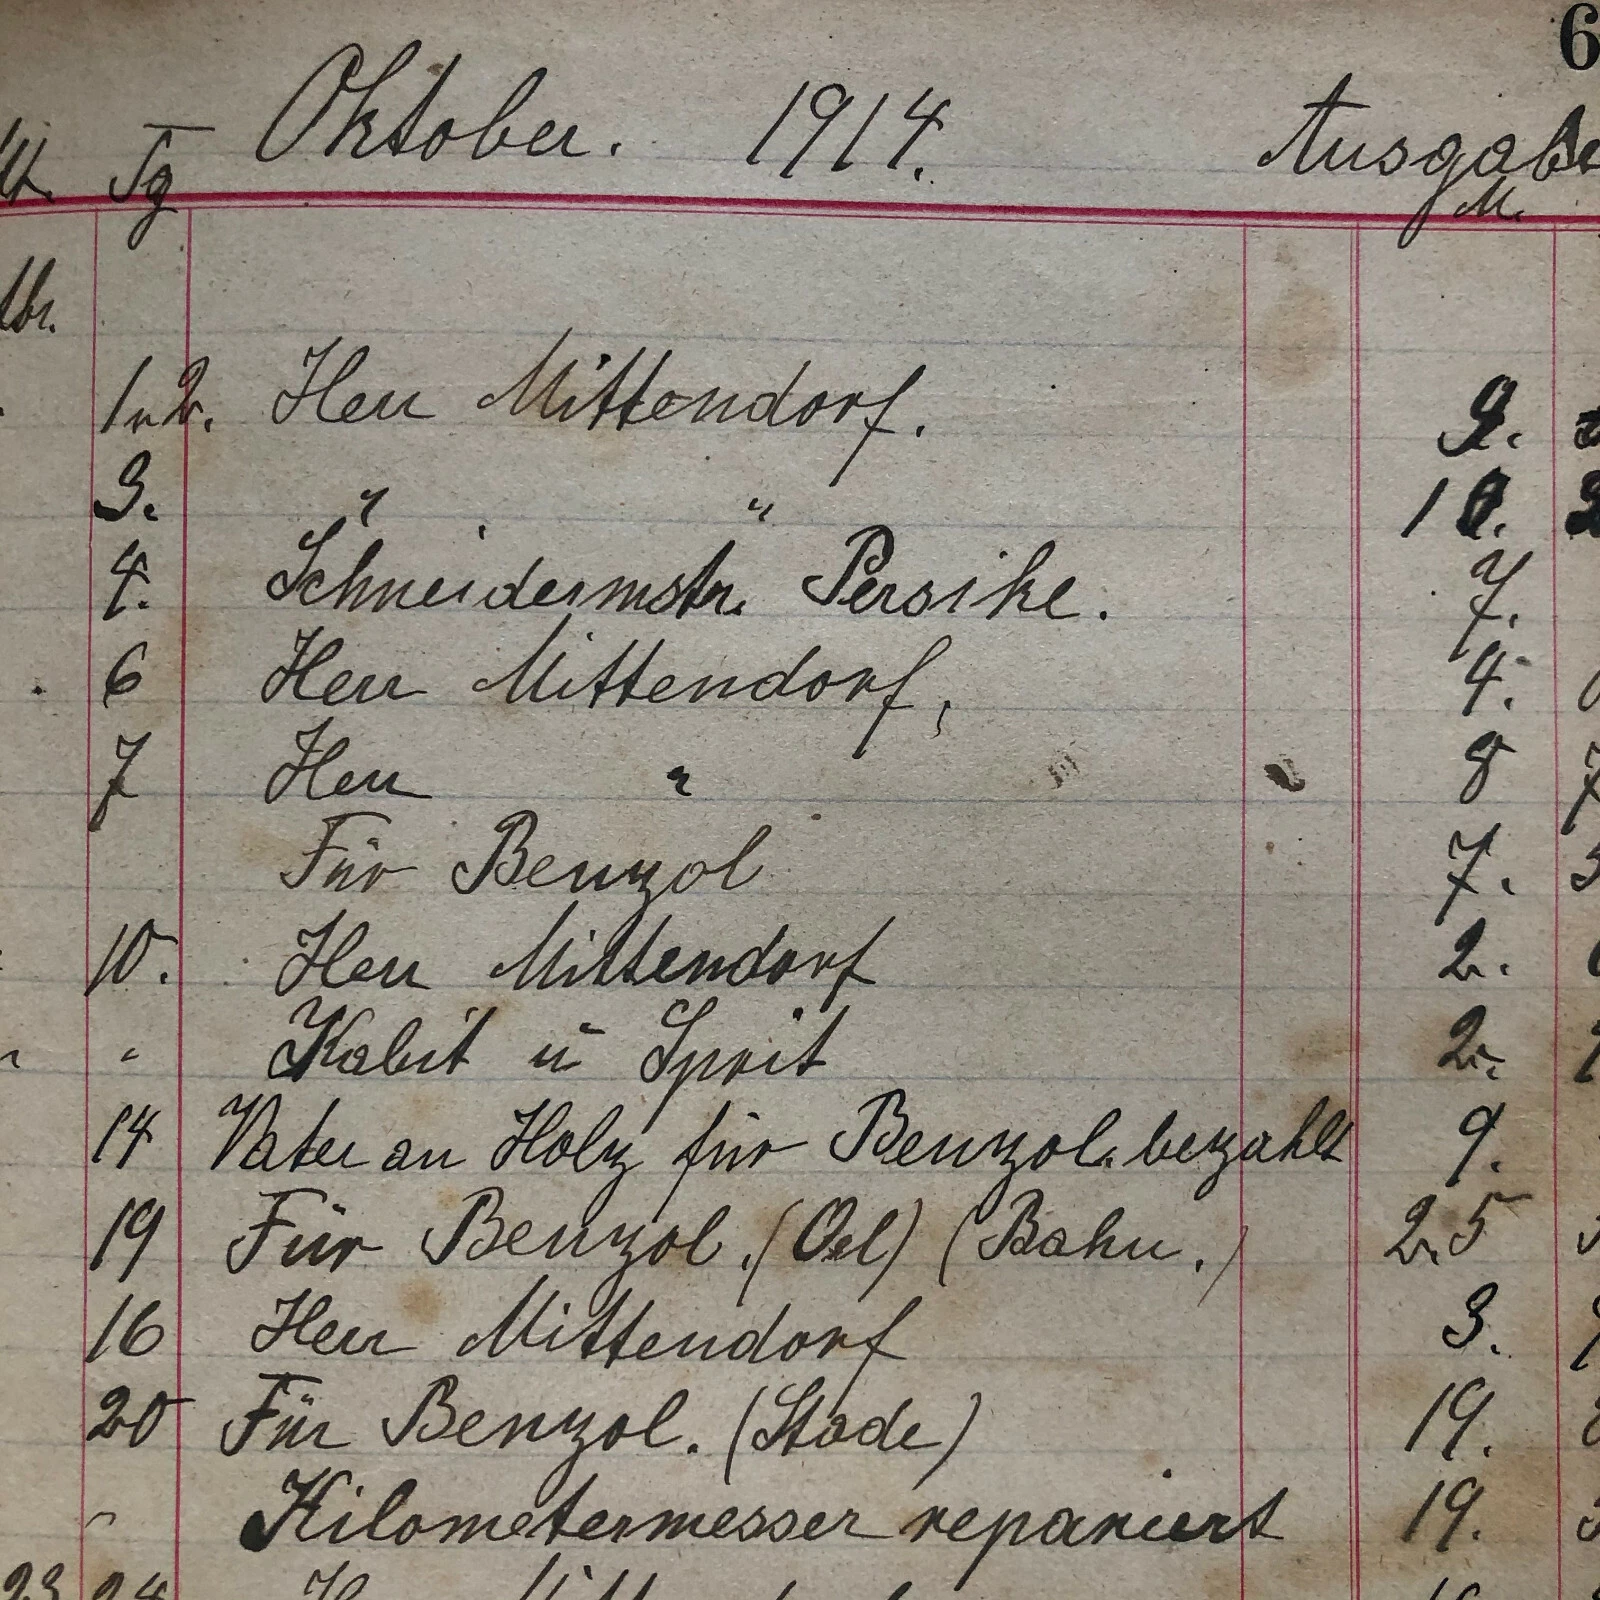 6
Oktober. 1914. Ausgabe
Tg M.
1 u 2. Herr Mittendorf. 9.
3. " " 10.
4. Schneidermstr. Persike. 7.
6 Herr Mittendorf, 4.
7 Herr " 8 7
Für Benzol 7. 5
10. Herr Mittendorf 2.
" Kabit u Sprit 2.
14 Vater an Holz für Benzol. bezahlt 9.
19 Für Benzol. (Oel) (Bahn.) 25
16 Herr Mittendorf 3.
20 Für Benzol. (Stade) 19.
" Kilometermesser repariert 19.
23